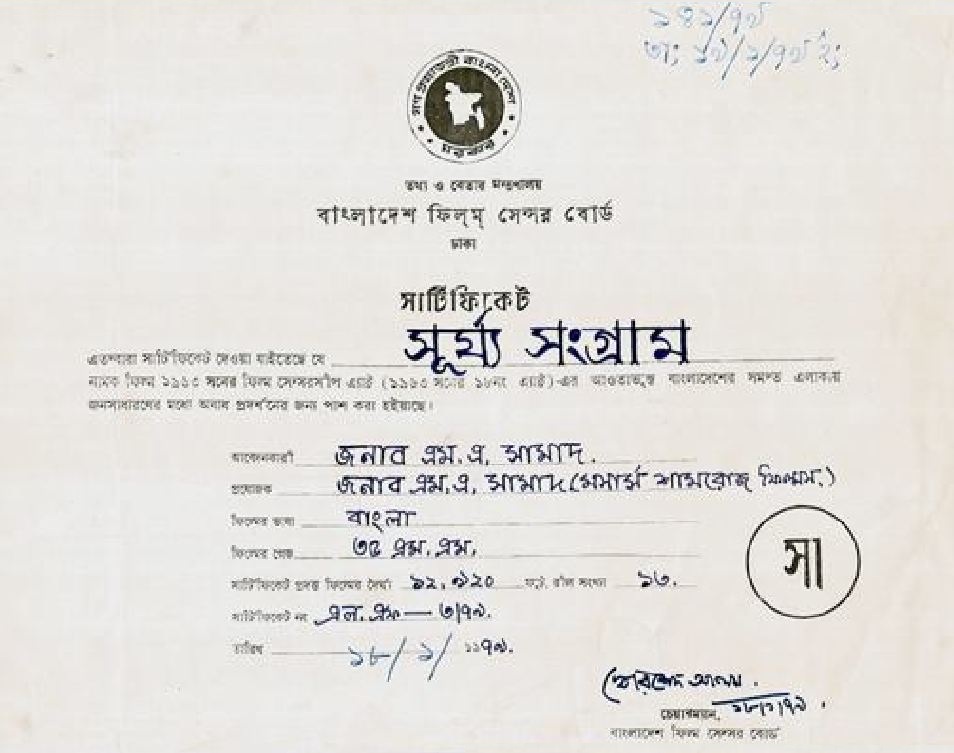 ১৪১/৭৯
তাং ১৯/১/৭৯ ইং
গণ প্রজাতন্ত্রী বাংলাদেশ
সরকার
তথ্য ও বেতার মন্ত্রণালয়
বাংলাদেশ ফিল্ম্ সেন্সর বোর্ড
ঢাকা
সার্টিফিকেট
এতদ্বারা সার্টিফিকেট দেওয়া যাইতেছে যে সূর্য্য সংগ্রাম
নামক ফিল্ম ১৯৬৩ সনের ফিল্ম সেন্সরশীপ এ্যাক্ট (১৯৬৩ সনের ১৮নং এ্যাক্ট)-এর আওতাভুক্ত বাংলাদেশের সমস্ত এলাকায়
জনসাধারণের মধ্যে অবাধ প্রদর্শনের জন্য পাশ করা হইয়াছে।
আবেদনকারী জনাব এম.এ. সামাদ.
প্রযোজক জনাব এম.এ. সামাদ (মেসার্স শামরোজ ফিল্মস.)
ফিল্মের ভাষা বাংলা
ফিল্মের গেজ ৩৫ এম. এম.
সার্টিফিকেট প্রদত্ত ফিল্মের দৈর্ঘ্য ১২,৯২০ ফুট, রীল সংখ্যা ১৩.
সার্টিফিকেট নং এল. এফ — ৩/৭৯.
তারিখ ১৮/১/ ১৯৭৯.
সা
১৮/১/৭৯.
চেয়ারম্যান,
বাংলাদেশ ফিল্ম সেন্সর বোর্ড